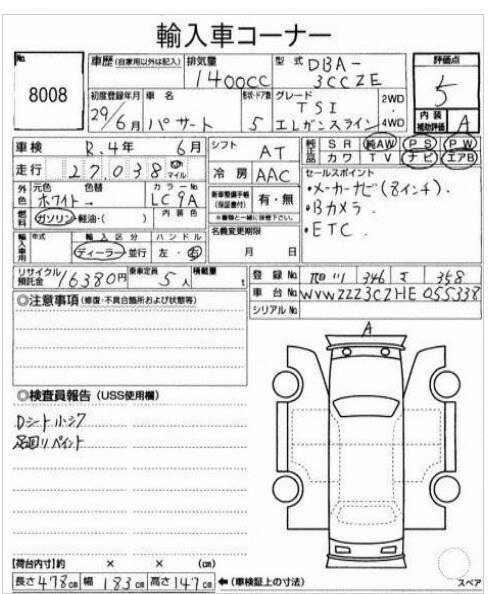 輸入車コーナー
No. 8008
車歴 (自家用以外は記入) 排気量 1400cc 型式 DBA-3CCZE 評価点 5
初度登録年月 29/6月 車名 パサート 形状・ドア数 5 グレード TSI エレガンスライン 2WD 4WD 内装補助評価 A
車検 R.4年 6月 シフト AT 純正品 SR 純AW PS PW
カワ TV ナビ エアB
走行 27,038 km マイル 冷房 AAC セールスポイント
・メーカーナビ(8インチ).
外色 元色 ホワイト 色替 → カラーNo LC9A 新車整備手帳(保証書付) 有・無 ・Bカメラ.
燃料 ガソリン・軽油・( ) 内装色 ※書類と一緒に保管下さい。 ・ETC.
輸入車用 年式 輸入区分 ディーラー・並行 ハンドル 左・右 名義変更期限 月 日
リサイクル預託金 16380円 乗車定員 5人 積載量 t 登録No 346 358
車台No WVWZZZ3CZHE055338
シリアルNo
◎注意事項 (修復・不具合箇所および状態等)
A
◎検査員報告 (USS使用欄)
Dシート小シワ
足回りペイント
【荷台内寸】約 × × (cm)
長さ 478cm 幅 183cm 高さ 147cm ←(車検証上の寸法) スペア